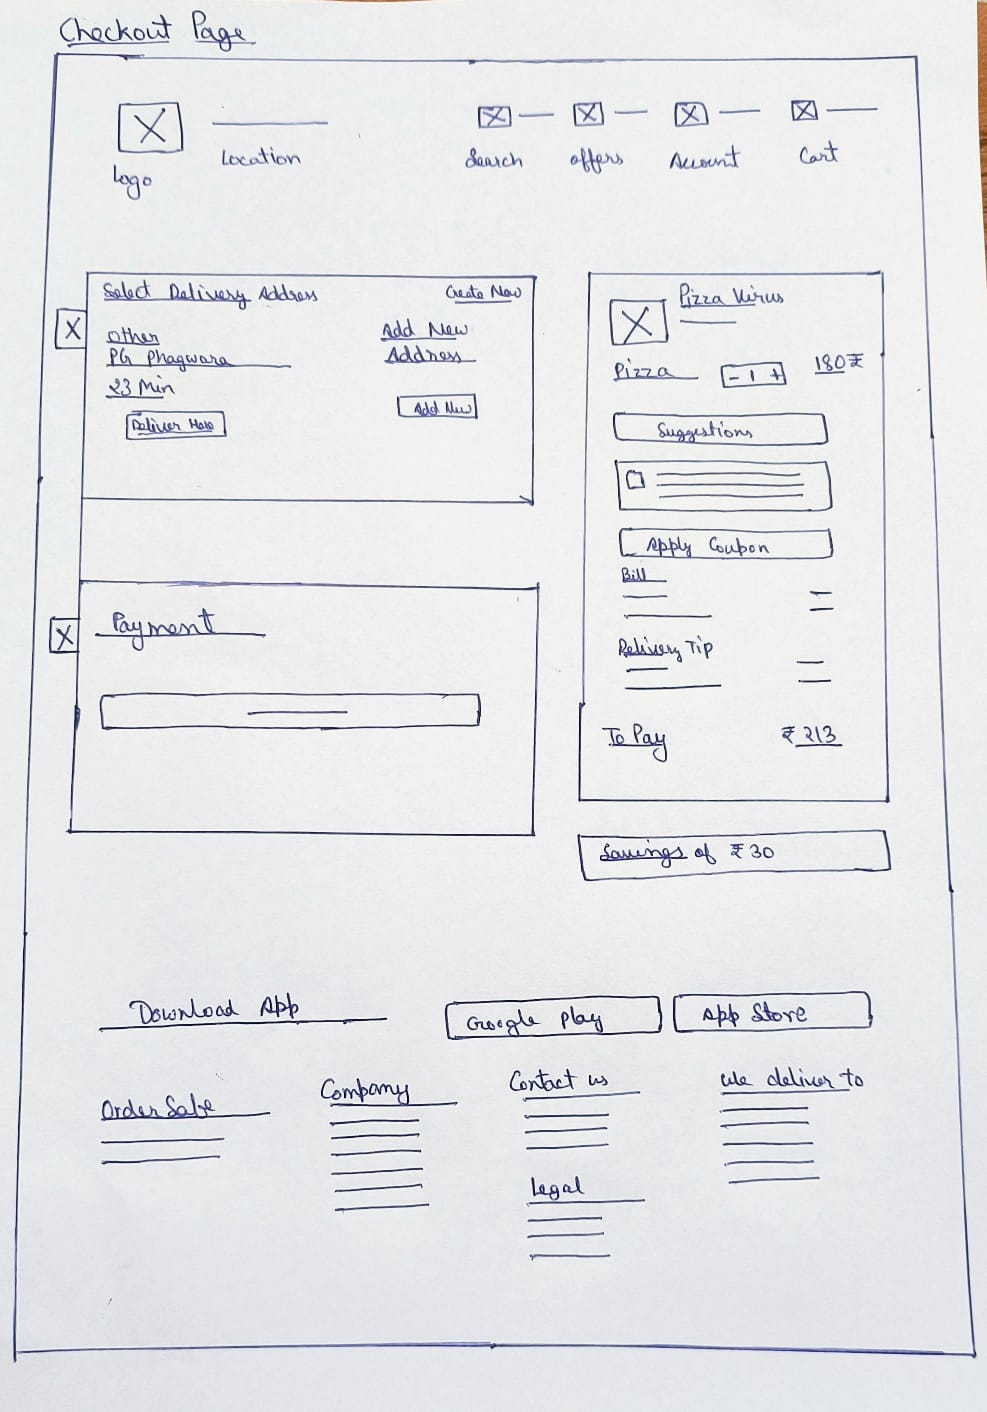 Checkout Page
Logo
Location
Search
offers
Account
Cart
Select Delivery Address
Create New
Other
PG Phagwara
23 Min
Deliver Here
Add New
Address
Add New
Payment
Pizza Virus
Pizza
- 1 +
180₹
Suggestions
Apply Coupon
Bill
Delivery Tip
To Pay
₹ 213
Savings of ₹ 30
Download App
Google Play
App Store
Order Safe
Company
Contact us
Legal
We deliver to